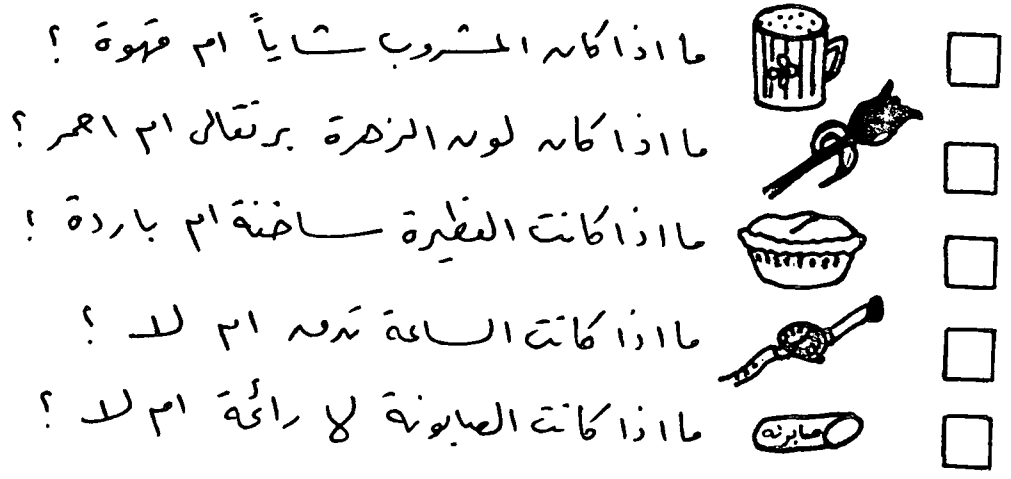 ما اذا كان المشروب شاياً ام قهوة ؟
ما اذا كان لون الزهرة برتقالى ام احمر ؟
ما اذا كانت الفطيرة ساخنة ام باردة ؟
ما اذا كانت الساعة تدق ام لا ؟
ما اذا كانت الصابونة لا رائحة ام لا ؟
صابونه